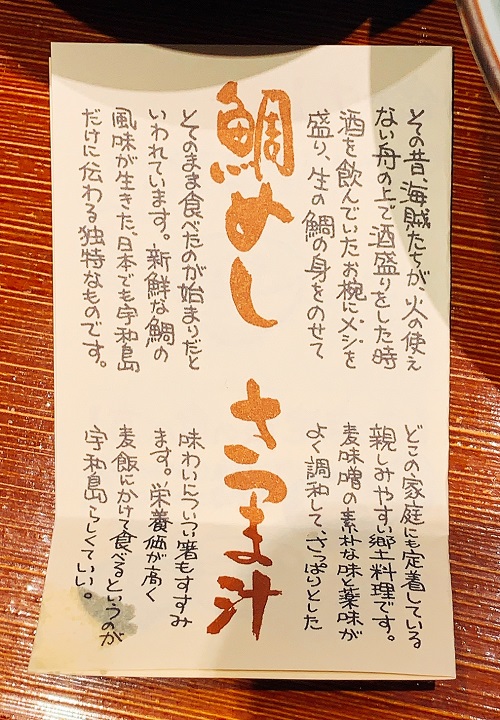 鯛めし
その昔、海賊たちが、火の使え
ない舟の上で酒盛りをした時
酒を飲んでいたお椀にメシを
盛り、生の鯛の身をのせて
とてのまま食べたのが始まりだと
いわれています。新鮮な鯛の
風味が生きた、日本でも宇和島
だけに伝わる独特なものです。
さつま汁
どこの家庭にも定着している
親しみやすい郷土料理です。
麦味噌の素朴な味と薬味が
よく調和して、さっぱりとした
味わいについつい箸もすすみ
ます。栄養価が高く
麦飯にかけて食べるというのが
宇和島らしくていい。